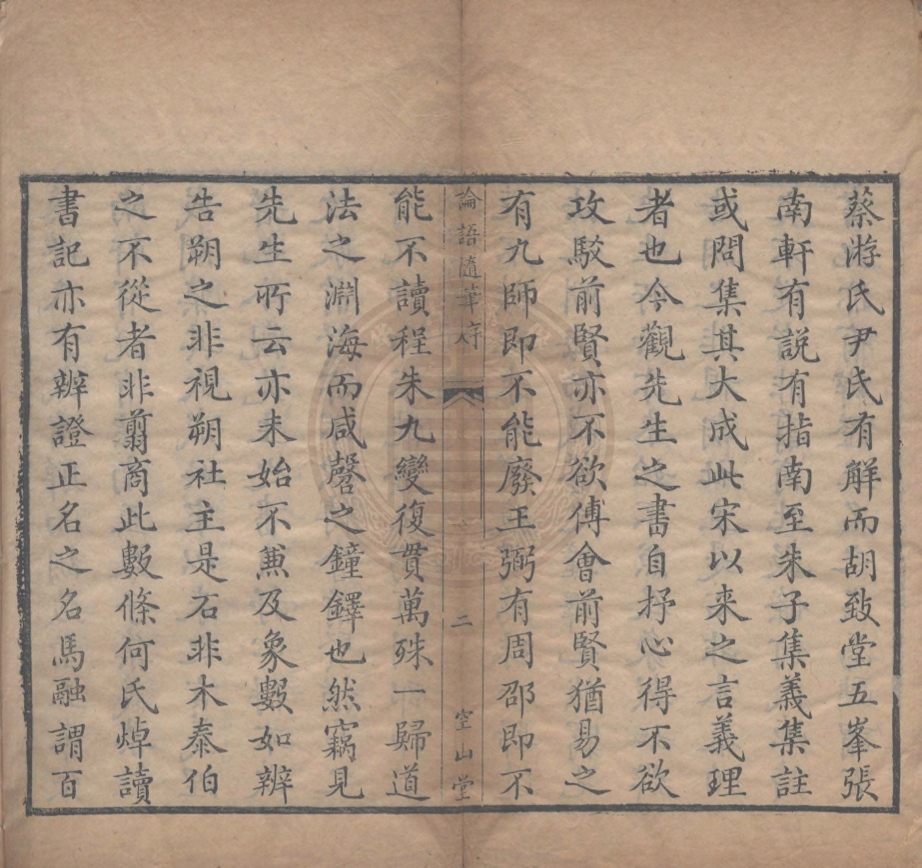 蔡游氏尹氏有解而胡致堂五峯張
南軒有説有指南至朱子集義集註
或問集其大成此宋以来之言義理
者也今觀先生之書自抒心得不欲
攻駁前賢亦不欲傅會前賢猶易之
有九師即不能廢王弼有周邵即不
論語隨筆序 二 空山堂
能不讀程朱九變復貫萬殊一歸道
法之淵海而咸磬之鐘鐸也然竊見
先生所云亦未始不兼及象數如辨
告朔之非視朔社主是石非木泰伯
之不從者非翦商此數條何氏焯讀
書記亦有辨證正名之名馬融謂百